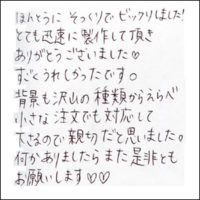 ほんとうに そっくりで ビックリしました!
とても迅速に製作して頂き
ありがとうございました♡
すごくうれしかったです。
背景も沢山の種類からえらべ
小さな注文でも対応して
下さるので親切だと思いました。
何かありましたらまた是非とも
お願いします♡♡